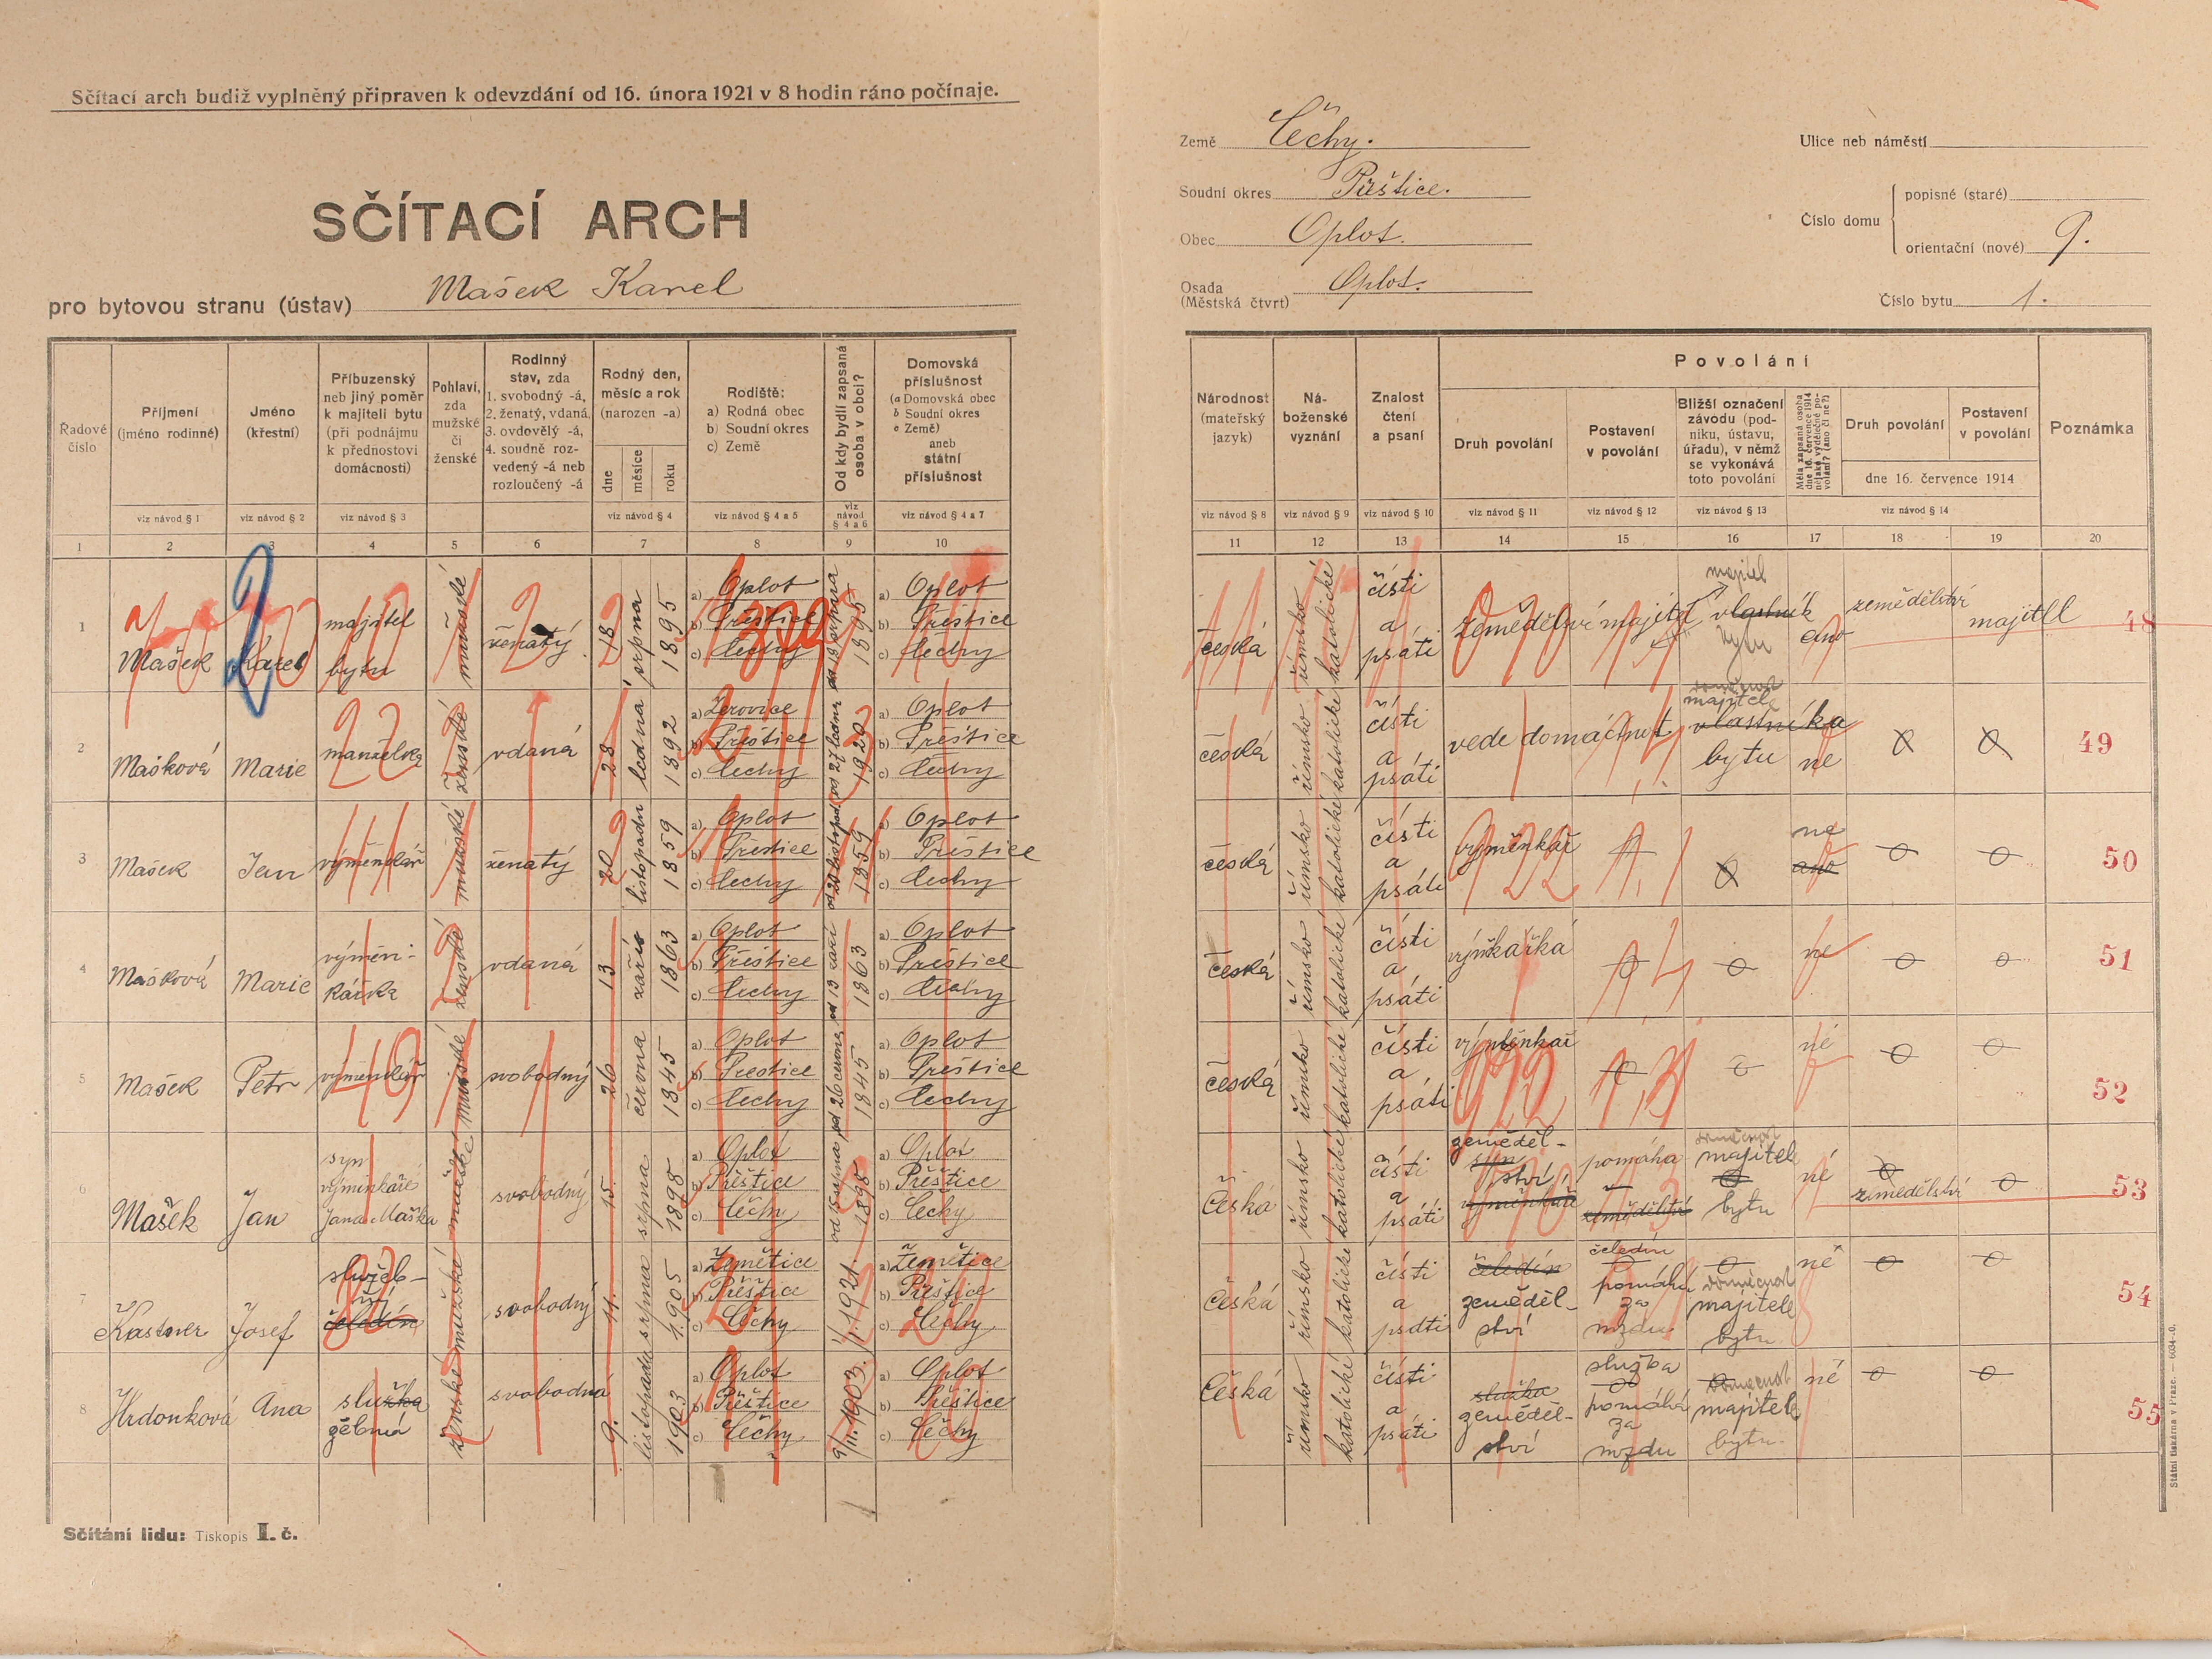 Sčítací arch budiž vyplněný připraven k odevzdání od 16. února 1921 v 8 hodin ráno počínaje.
SČÍTACÍ ARCH
pro bytovou stranu (ústav) Mašek Karel
Země Čechy.
Soudní okres Přeštice.
Obec Oplot.
Osada Oplot.
(Městská čtvrt)
Ulice neb náměstí
Číslo domu
popisné (staré)
orientační (nové) 9.
Číslo bytu 1.
Řadové číslo
Příjmení (jméno rodinné)
Jméno (křestní)
Příbuzenský neb jiný poměr k majiteli bytu (při podnájmu k přednostovi domácnosti)
Pohlaví, zda mužské či ženské
Rodinný stav, zda 1. svobodný -á, 2. ženatý, vdaná, 3. ovdovělý -á, 4. soudně rozvedený -á neb rozloučený -á
Rodný den, měsíc a rok (narozen -a)
dne měsíce roku
Rodiště:
a) Rodná obec
b) Soudní okres
c) Země
Od kdy bydlí zapsaná osoba v obci?
Domovská příslušnost
(a Domovská obec
b Soudní okres
c Země)
aneb státní příslušnost
viz návod § 1 viz návod § 2 viz návod § 3 viz návod § 4 viz návod § 4 a 5 viz návod § 4 a 6 viz návod § 4 a 7
1 2 3 4 5 6 7 8 9 10
Národnost (mateřský jazyk)
Náboženské vyznání
Znalost čtení a psaní
Povolání
Druh povolání
Postavení v povolání
Bližší označení závodu (podniku, ústavu, úřadu), v němž se vykonává toto povolání
Měla zapsaná osoba dne 16. července 1914 nějaké výdělečné povolání? (ano či ne?)
Druh povolání
Postavení v povolání
dne 16. července 1914
Poznámka
viz návod § 8 viz návod § 9 viz návod § 10 viz návod § 11 viz návod § 12 viz návod § 13 viz návod § 14
11 12 13 14 15 16 17 18 19 20
1 Mašek Karel majitel bytu mužské ženatý 18 srpna 1895 a) Oplot b) Přeštice c) Čechy od 18 srpna 1895 a) Oplot b) Přeštice c) Čechy
česká římsko katolické čísti a psáti Zemědělství majitel vlastník majitel bytu ano zemědělství majitel 48
2 Mašková Marie manželka ženské vdaná 28 ledna 1892 a) Žerovice b) Přeštice c) Čechy od 27 ledna 1920 a) Oplot b) Přeštice c) Čechy
česká římsko katolické čísti a psáti vede domácnost domácnost majitele vlastníka bytu ne 49
3 Mašek Jan výměnkář mužské ženatý 20 listopadu 1859 a) Oplot b) Přeštice c) Čechy od 20 listopad 1859 a) Oplot b) Přeštice c) Čechy
česká římsko katolické čísti a psáti výměnkář ne ano 50
4 Mašková Marie výměnkářka ženské vdaná 13 září 1863 a) Oplot b) Přeštice c) Čechy od 13 září 1863 a) Oplot b) Přeštice c) Čechy
česká římsko katolické čísti a psáti ne 51
5 Mašek Petr výměnkář mužské svobodný 26 června 1845 a) Oplot b) Přeštice c) Čechy od 26 června 1845 a) Oplot b) Přeštice c) Čechy
česká římsko katolické čísti a psáti výměnkář né 52
6 Mašek Jan syn výměnkáře Jana Maška mužské svobodný 15. srpna 1898 a) Oplot b) Přeštice c) Čechy od 15 srpna 1898 a) Oplot b) Přeštice c) Čechy
Česká římsko katolické čísti a psáti zemědělství syn výměnkáře pomáhá v zemědělství domácnost majitele bytu né zemědělství 53
7 Kastner Josef služebný čeledín mužské svobodný 11. srpna 1905 a) Žemětice b) Přeštice c) Čechy 1/1. 1921. a) Žemětice b) Přeštice c) Čechy
Česká římsko katolické čísti a psáti čeledín zemědělství čeledín pomáhá za mzdu domácnost majitele bytu né 54
8 Hrdonková Ana služka ženské svobodná 9. listopadu 1903 a) Oplot b) Přeštice c) Čechy 9/11. 1903. a) Oplot b) Přeštice c) Čechy
Česká římsko katolické čísti a psáti služka zemědělství služka pomáhá za mzdu domácnost majitele bytu né 55
Sčítání lidu: Tiskopis I. č.
Státní tiskárna v Praze. — 6034-0.